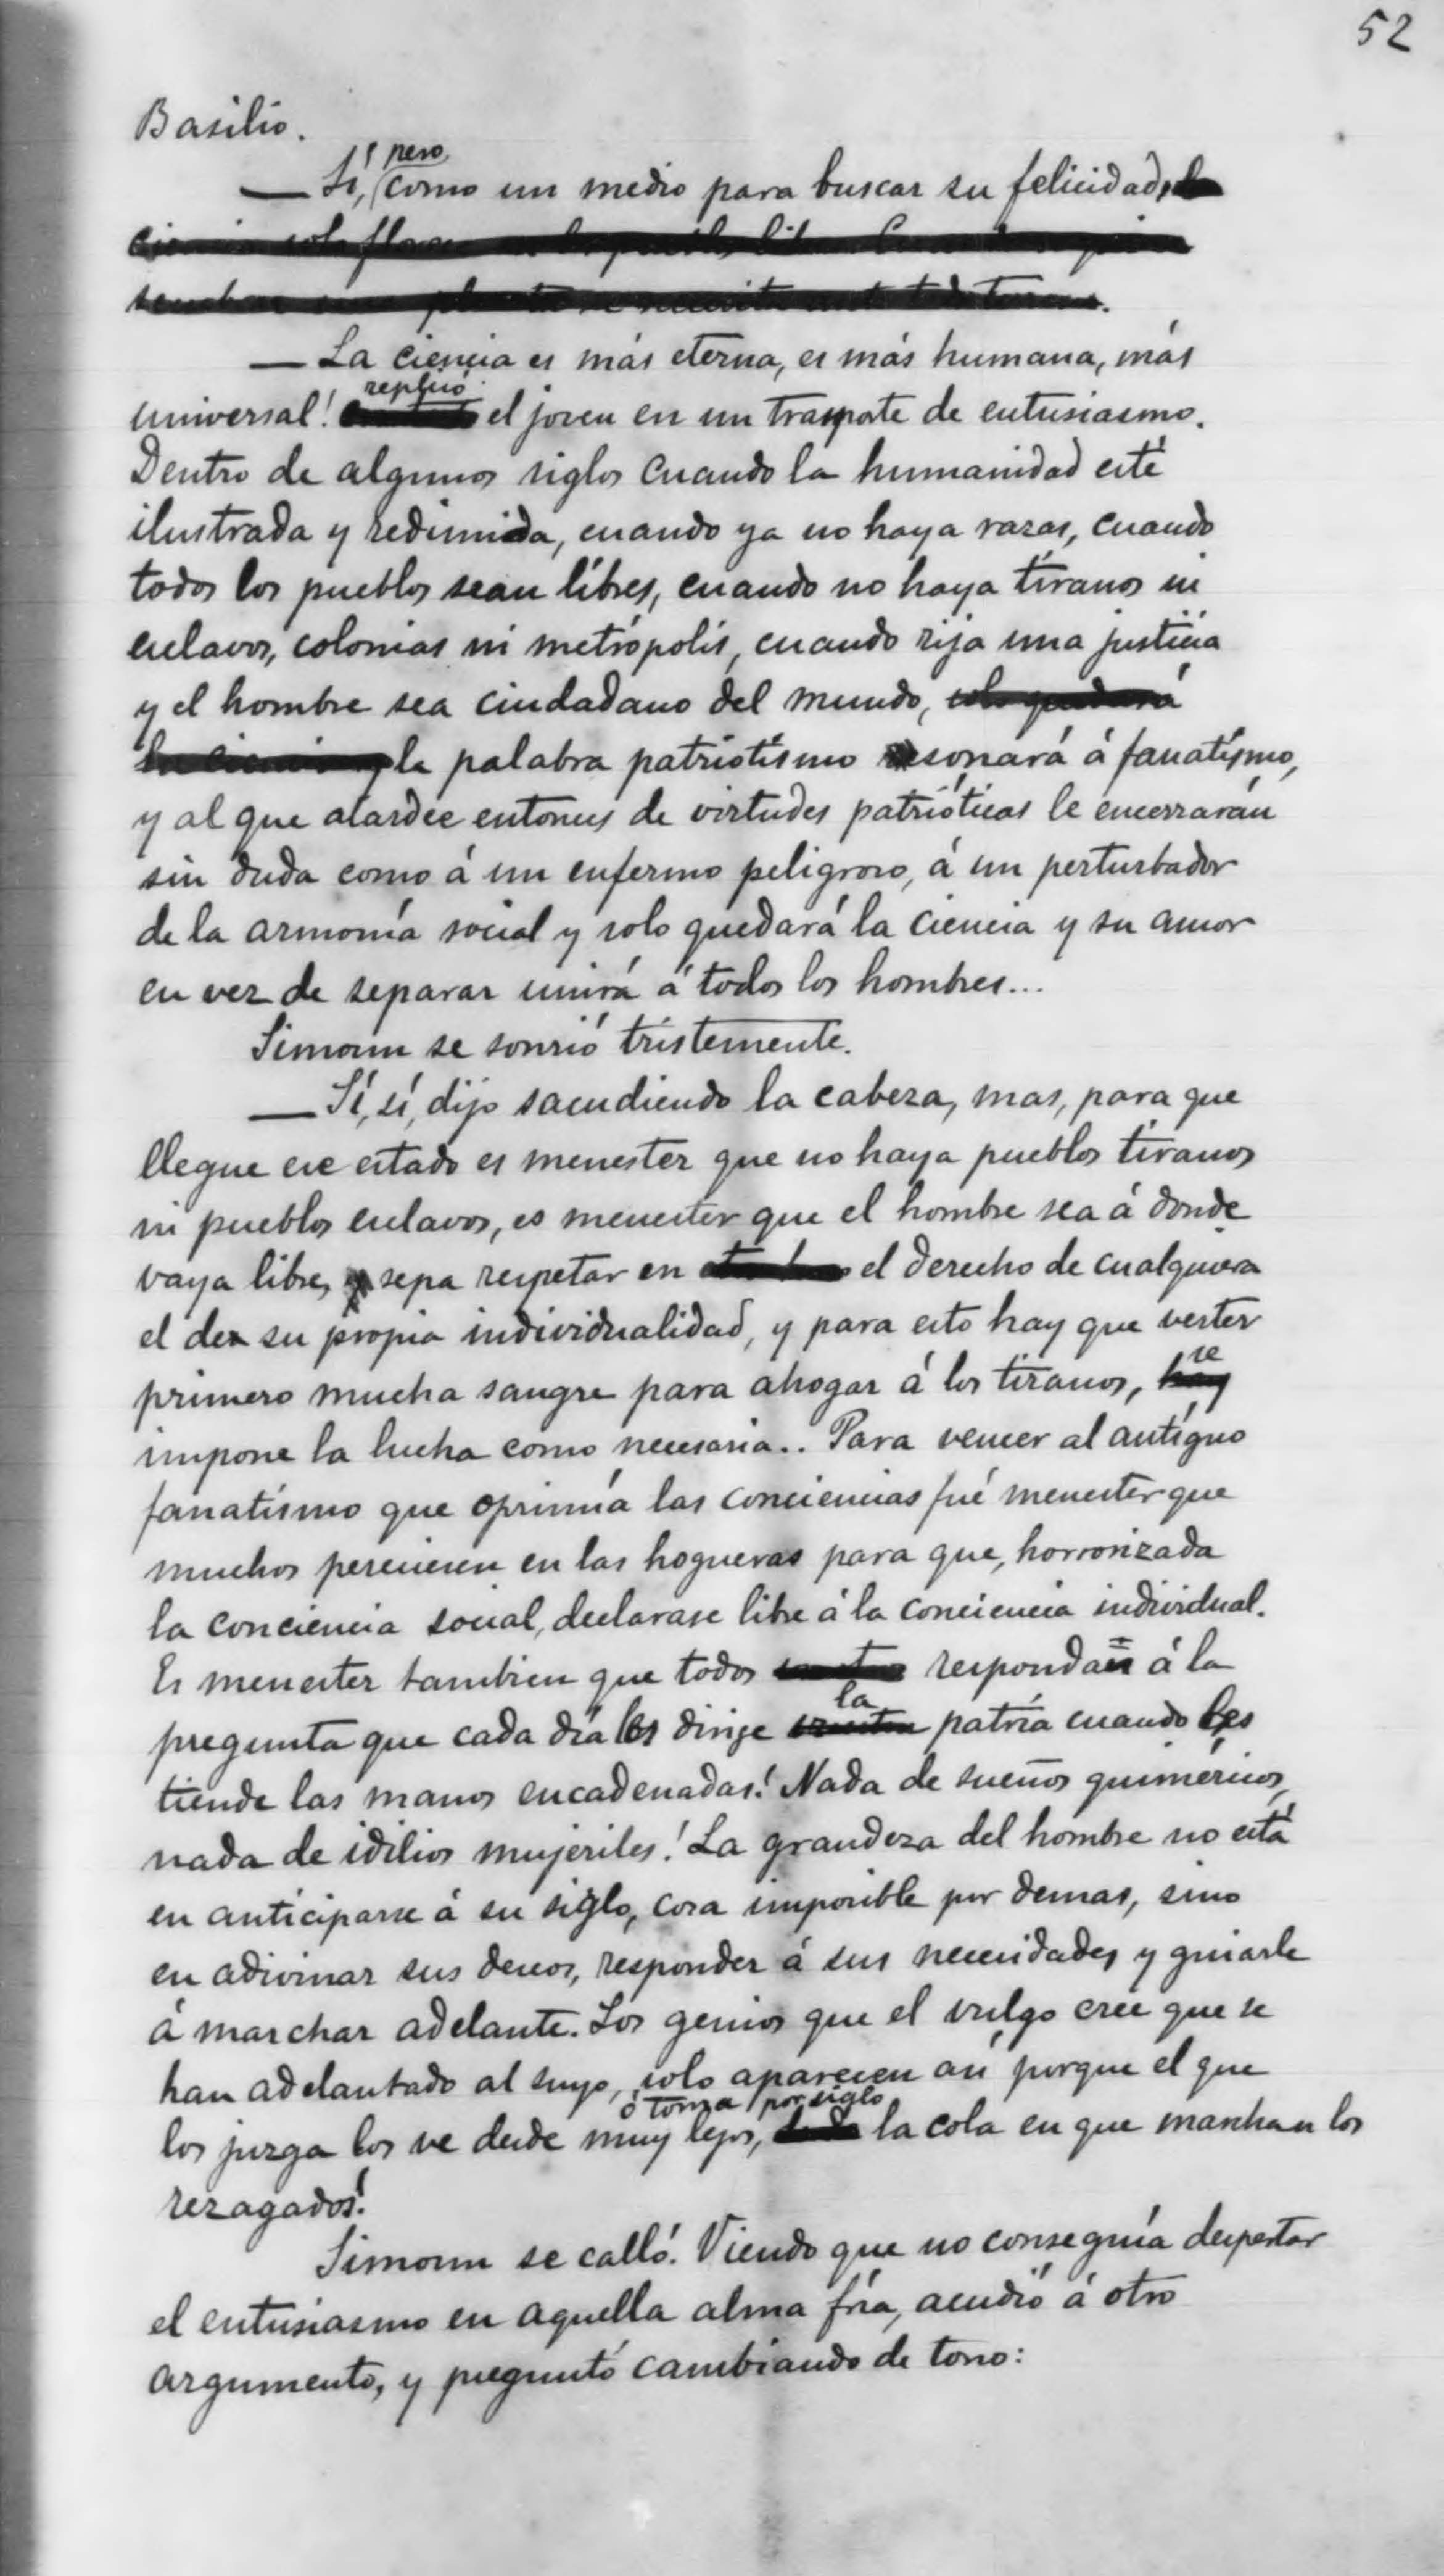 52
Basilio.
pero
— Sí, como un medio para buscar su felicidad,
— La ciencia es más eterna, es más humana, más
replicó
universal! el joven en un trasporte de entusiasmo.
Dentro de algunos siglos cuando la humanidad esté
ilustrada y redimida, cuando ya no haya razas, cuando
todos los pueblos sean libres, cuando no haya tiranos ni
esclavos, colonias ni metrópolis, cuando rija una justicia
y el hombre sea ciudadano del mundo, solo quedará
la ciencia y la palabra patriotismo sonará á fanatismo,
y al que alardee entonces de virtudes patrióticas le encerrarán
sin duda como á un enfermo peligroso, á un perturbador
de la armonía social y solo quedará la ciencia y su amor
en vez de separar unirá á todos los hombres...
Simoun se sonrió tristemente.
— Sí, sí, dijo sacudiendo la cabeza, mas, para que
llegue ese estado es menester que no haya pueblos tiranos
ni pueblos esclavos, es menester que el hombre sea á donde
vaya libre, sepa respetar en el derecho de cualquiera
el de su propia individualidad, y para esto hay que verter
se
primero mucha sangre para ahogar á los tiranos, hay
impone la lucha como necesaria.. Para vencer al antiguo
fanatismo que oprimía las conciencias fué menester que
muchos pereciesen en las hogueras para que, horrorizada
la conciencia social, declarase libre á la conciencia individual.
Es menester tambien que todos respondan á la
la
pregunta que cada día les dirige patria cuando les
tiende las manos encadenadas! Nada de sueños quiméricos,
nada de idilios mujeriles! La grandeza del hombre no está
en anticiparse á su siglo, cosa imposible por demas, sino
en adivinar sus deseos, responder á sus necesidades y guiarle
á marchar adelante. Los genios que el vulgo cree que se
han adelantado al suyo, solo aparecen así porque el que
ó toma por siglo
los juzga los ve desde muy lejos, la cola en que marchan los
rezagados!
Simoun se calló. Viendo que no conseguía despertar
el entusiasmo en aquella alma fría, acudió á otro
argumento, y preguntó cambiando de tono: